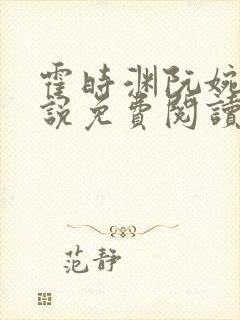 霍時渊阮婉
說免費閱讀
范靜